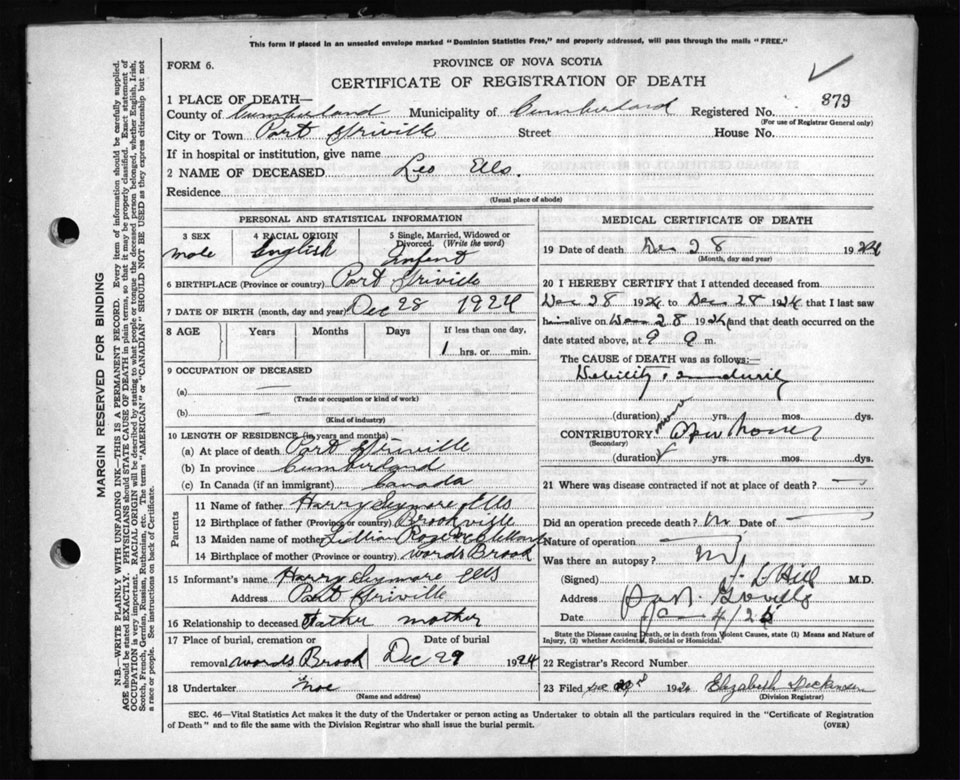 This form if placed in an unsealed envelope marked "Dominion Statistics Free," and properly addressed, will pass through the mails "FREE."
FORM 6.
PROVINCE OF NOVA SCOTIA
CERTIFICATE OF REGISTRATION OF DEATH
1 PLACE OF DEATH—
County of Cumberland Municipality of Cumberland Registered No. 879
(For use of Registrar General only)
City or Town Port Griville Street House No.
If in hospital or institution, give name
2 NAME OF DECEASED Leo Ells.
Residence
(Usual place of abode)
MARGIN RESERVED FOR BINDING
N.B.—WRITE PLAINLY WITH UNFADING INK—THIS IS A PERMANENT RECORD. Every item of information should be carefully supplied.
AGE should be stated EXACTLY. PHYSICIANS should STATE CAUSE OF DEATH in plain terms, so that it may be properly classified. Exact statement of
OCCUPATION is very important. RACIAL ORIGIN will be described by stating to what people or tongue the deceased person belonged, whether English, Irish,
Scotch, French, German, Russian, Ruthenian, etc. The terms "AMERICAN" or "CANADIAN" SHOULD NOT BE USED as they express citizenship but not
a race or people. See instructions on back of Certificate.
PERSONAL AND STATISTICAL INFORMATION
3 SEX
male
4 RACIAL ORIGIN
English
5 Single, Married, Widowed or
Divorced. (Write the word)
Infent
6 BIRTHPLACE (Province or country) Port Griville
7 DATE OF BIRTH (month, day and year) Dec 28 1924
8 AGE Years Months Days If less than one day,
1 hrs. or min.
9 OCCUPATION OF DECEASED
(a) —
(Trade or occupation or kind of work)
(b) —
(Kind of industry)
10 LENGTH OF RESIDENCE (in years and months)
(a) At place of death Port Griville
(b) In province Cumberland
(c) In Canada (if an immigrant) Canada
Parents
11 Name of father Harry Seymore Ells
12 Birthplace of father (Province or country) Brookville
13 Maiden name of mother Lillian Rose
14 Birthplace of mother (Province or country) Words Brook
15 Informant's name Harry Seymore Ells
Address Port Griville
16 Relationship to deceased Father mother
17 Place of burial, cremation or
removal Words Brook
Date of burial
Dec 29 1924
18 Undertaker
(Name and address)
MEDICAL CERTIFICATE OF DEATH
19 Date of death Dec 28 1924
(Month, day and year)
20 I HEREBY CERTIFY that I attended deceased from
Dec 28 1924 to Dec 28 1924 that I last saw
him alive on Dec 28 1924 and that death occurred on the
date stated above, at 9 a m.
The CAUSE of DEATH was as follows:—
Debility
(duration) yrs. mos. dys.
CONTRIBUTORY
(Secondary)
(duration) yrs. mos. dys.
21 Where was disease contracted if not at place of death? —
Did an operation precede death? No Date of —
Nature of operation —
Was there an autopsy? No
(Signed) Hill M.D.
Address Port Griville
Date 4/25
State the Disease causing Death, or in death from Violent Causes, state (1) Means and Nature of
Injury, (2) whether Accidental, Suicidal or Homicidal.
22 Registrar's Record Number
23 Filed Dec 1924 Elizabeth Dickinson
(Division Registrar)
SEC. 46—Vital Statistics Act makes it the duty of the Undertaker or person acting as Undertaker to obtain all the particulars required in the "Certificate of Registration
of Death" and to file the same with the Division Registrar who shall issue the burial permit. (OVER)